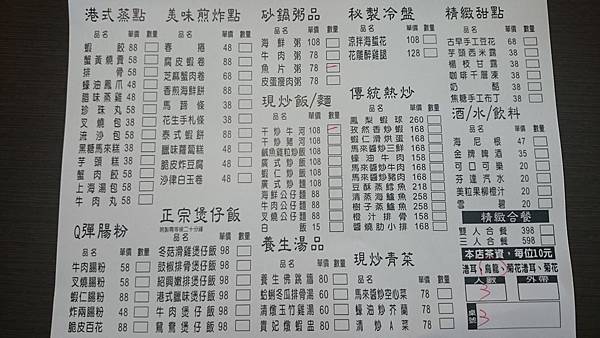 港式蒸點
品名 單價 數量
蝦餃 88
蟹黃燒賣 58
排骨 58
蠔油鳳爪 48
腊味蒸雞 48
珍珠丸 58
叉燒包 58
流沙包 58
黑糖馬來糕 38
芋頭糕 38
蟹肉餃 58
上海湯包 58
牛肉丸 58
Q彈腸粉
品名 單價 數量
牛肉腸粉 58
叉燒腸粉 58
蝦仁腸粉 88
炸兩腸粉 48
脆皮百花 88
美味煎炸點
品名 單價 數量
春捲 48
腐皮蝦卷 58
芝麻蟹肉卷 58
香煎海鮮餅 58
馬蹄條 38
花生手札條 38
泰式蝦餅 68
臘味蘿蔔糕 48
脆皮炸豆腐 48
沙律白玉卷 48
正宗煲仔飯
品名 單價 數量
冬菇滑雞煲仔飯 98
鼓椒排骨煲仔飯 98
紹興嫩排煲仔飯 98
港式臘味煲仔飯 98
牛肉煲仔飯 98
鴛鴦煲仔飯 98
砂鍋粥品
品名 單價 數量
海鮮粥 108
牛肉粥 78
魚片粥 78
皮蛋瘦肉粥 78
現炒飯/麵
品名 單價 數量
干炒牛河 108
干炒豬河 108
鹹魚雞粒炒飯 108
廣式炒飯 108
蝦仁炒飯 108
廣式炒麵 108
海鮮公仔麵 88
牛肉公仔麵 88
叉燒公仔麵 88
白飯 15
養生湯品
品名 單價 數量
養生佛跳牆 80
蛤蜊冬瓜排骨湯 60
清燉玉竹雞湯 60
貴妃燉蝦盅 80
秘製冷盤
品名 單價 數量
涼拌海蜇花 108
花雕醉雞腿 128
傳統熱炒
品名 單價 數量
鳳梨蝦球 260
孜然香炒蝦 168
蝦仁滑烘蛋 168
馬來醬炒三鮮 168
蠔油牛肉 158
馬來醬炒牛肉 168
馬來醬炒豬肉 168
豆酥蒸鱈魚 218
清蒸鱸魚 258
樹子蒸鱸魚 258
橙汁排骨 158
醬燒肋小排 168
現炒青菜
品名 單價 數量
馬來醬炒空心菜 78
蠔油芥蘭 78
清炒A菜 78
精緻甜點
品名 單價 數量
古早手工豆花 38
芋頭西米露 38
楊枝甘露 38
咖啡千層凍 38
奶酪 38
焦糖手工布丁 38
酒/水/飲料
品名 單價 數量
海尼根 47
金牌啤酒 35
可口可樂 20
芬達汽水 20
美粒果柳橙汁 20
雪碧 20
精緻合餐
雙人合餐 398
三人合餐 598
本店茶資，每位10元
潽耳、烏龍、菊花潽耳、菊花
人數 外帶
3
桌號
3